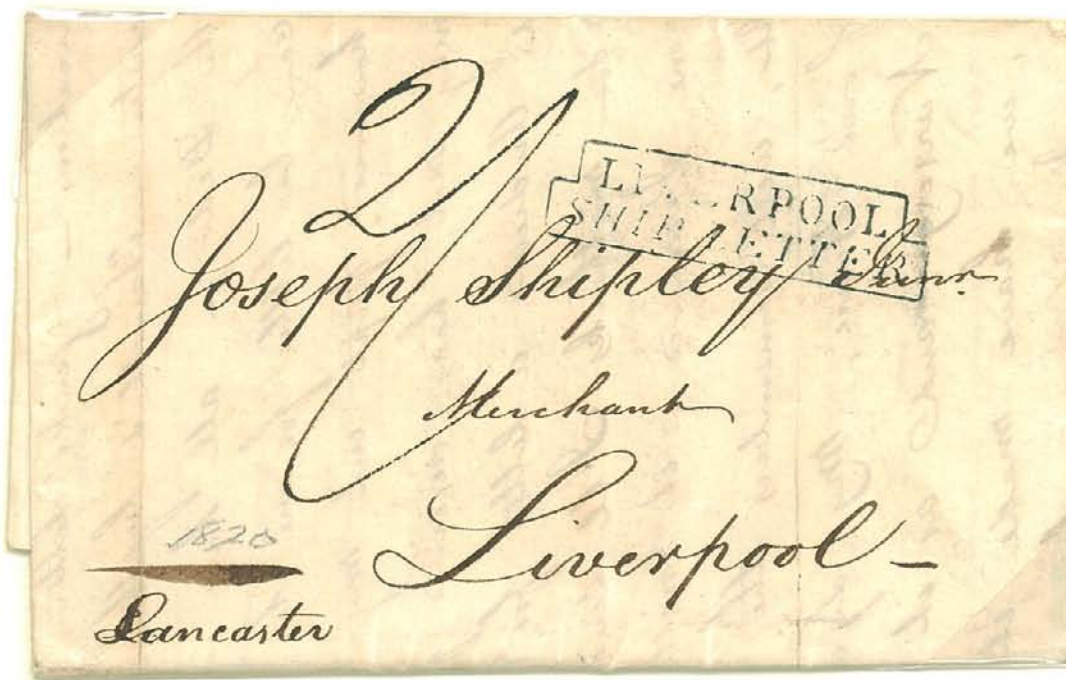 2/
LIVERPOOL
SHIP LETTER
Joseph Shipley Junr.
Merchant
Liverpool –
1820
Lancaster